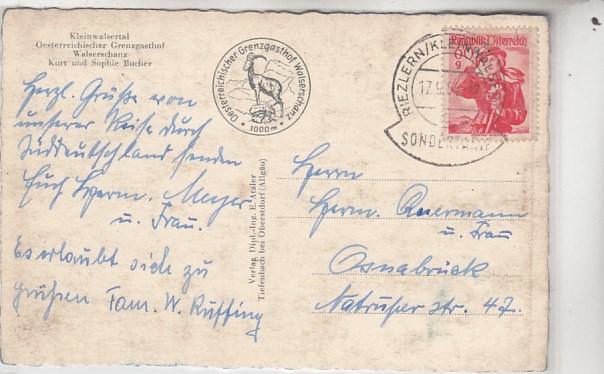 Kleinwalsertal
Oesterreichischer Grenzgasthof
Walserschanz
Kurt und Sophie Bucher
Oesterreichischer Grenzgasthof Walserschanz
1000 m
RIEZLERN/KLEINWALSERTAL
17.9.
SONDERTARIF
Republik Österreich
60
g
Herzl. Grüße von
unserer Reise durch
Süddeutschland senden
Euch Herm. Meyer
u. Frau.
Es erlaubt sich zu
grüßen Fam. W. Ruffing
Verlag Dipl.-Ing. E. Atzler
Tiefenbach bei Oberstdorf (Allgäu)
Herrn
Herm. Auermann
u. Frau
Osnabrück
Natruper str. 47.